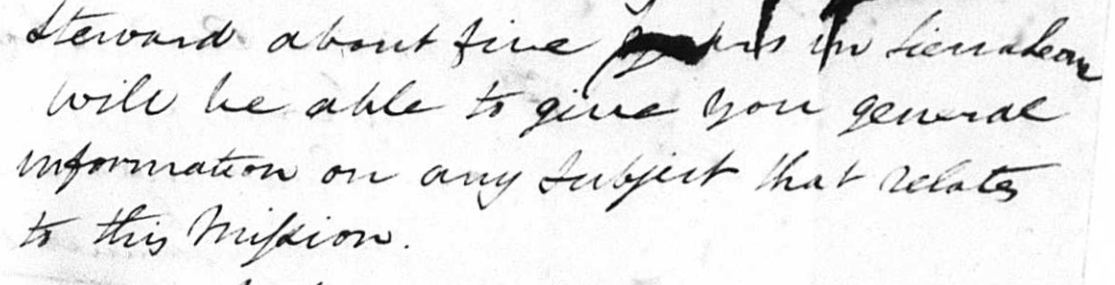 Steward about five years in Sierraleone
will be able to give you general
information on any Subject that relates
to this Mission.